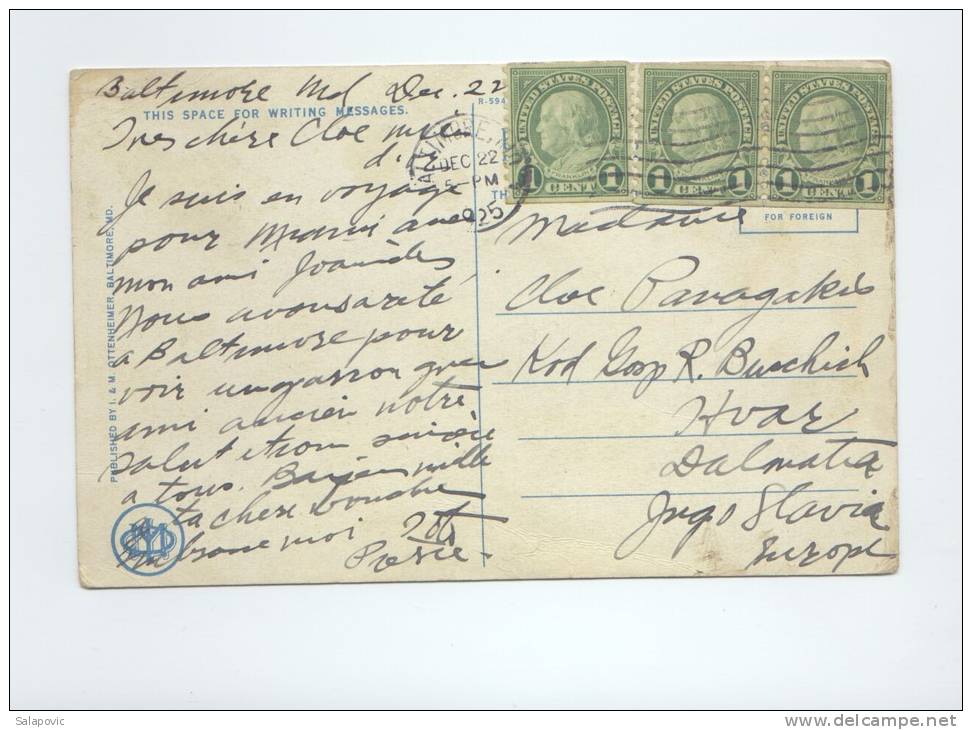 Baltimore Md Dec. 22
THIS SPACE FOR WRITING MESSAGES.
R-594
Tres chère Cloe
d.
Je suis en voyage
pour Miami avec
mon ami Joanides
Nous avons arété
a Baltimore pour
voir un garson
ami ancien notre
salutation sincère
a tous. mille
a ta chère
moi
PUBLISHED BY I. & M. OTTENHEIMER, BALTIMORE, MD.
BALTIMORE, MD.
DEC 22
5-PM
1925
UNITED STATES POSTAGE
1 CENT 1
UNITED STATES POSTAGE
1 CENT 1
UNITED STATES POSTAGE
1 CENT 1
TH
FOR FOREIGN
Madame
Cloe Pavagakis
Kod Gosp R. Buchich
Hvar
Dalmatia
Jugo Slavia
Europe
Salapovic
delcampe.net